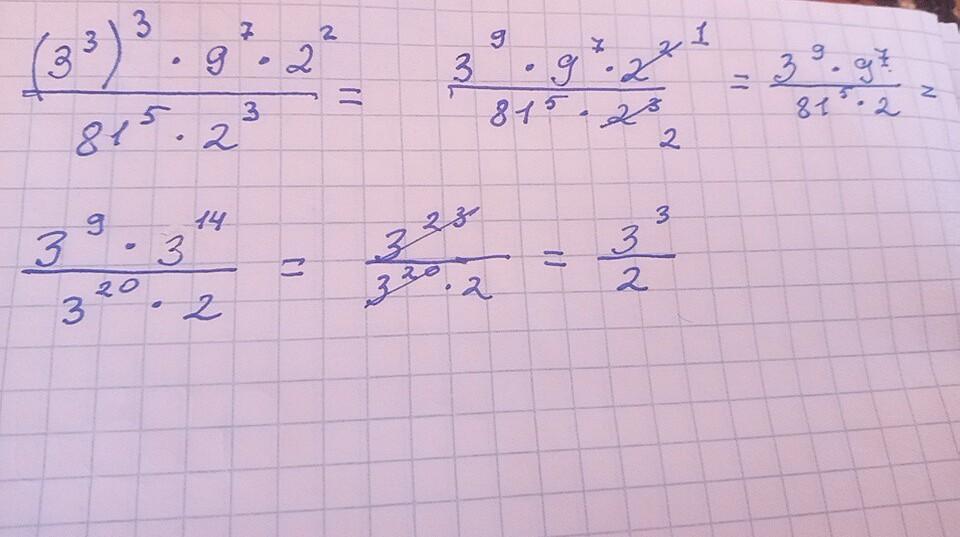 (3³)³ · 9⁷ · 2² / 81⁵ · 2³ = 3⁹ · 9⁷ · 2² 1 / 81⁵ · 2³ 2 = 3⁹ · 9⁷ / 81⁵ · 2 =
3⁹ · 3¹⁴ / 3²⁰ · 2 = 3²³ / 3²⁰ · 2 = 3³ / 2